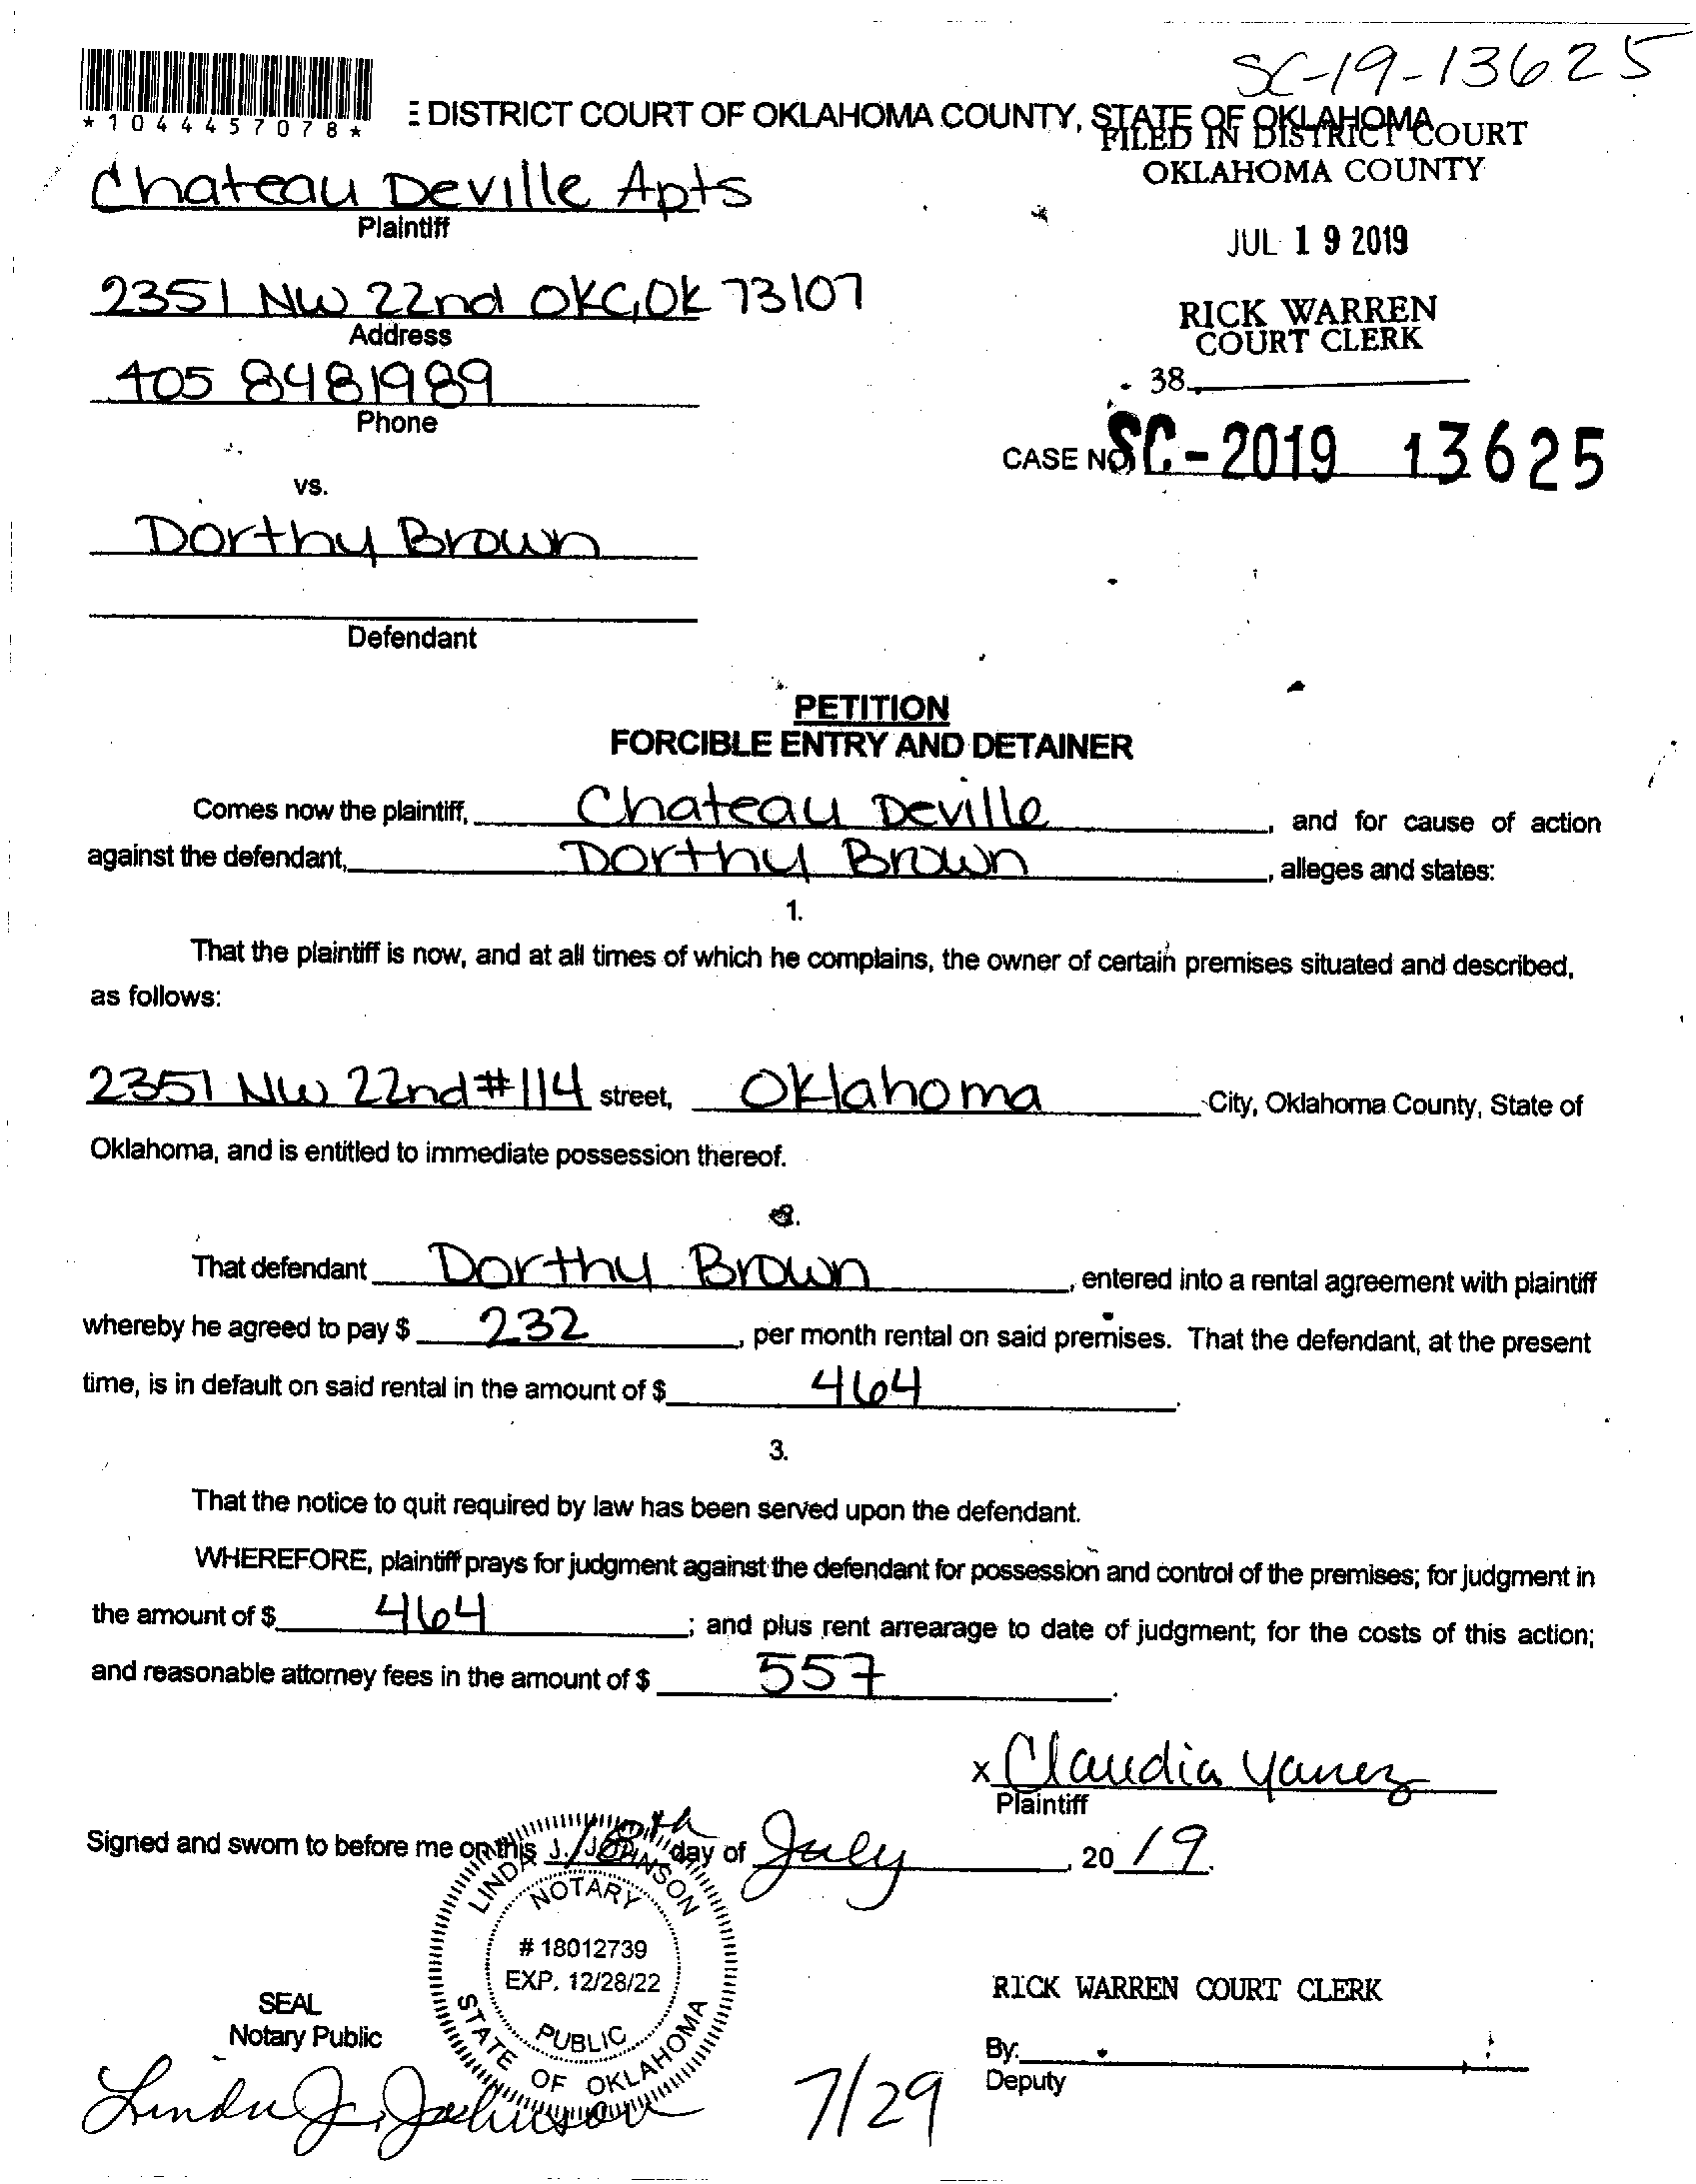 SC-19-13625
*1044457078*
E DISTRICT COURT OF OKLAHOMA COUNTY, STATE OF OKLAHOMA
FILED IN DISTRICT COURT
OKLAHOMA COUNTY
Chateau Deville Apts
Plaintiff
JUL 19 2019
2351 NW 22nd OKC, OK 73107
Address
RICK WARREN
COURT CLERK
405 8481989
Phone
38
CASE NO. SC-2019 13625
vs.
Dorthy Brown
Defendant
PETITION
FORCIBLE ENTRY AND DETAINER
Comes now the plaintiff, Chateau Deville, and for cause of action
against the defendant, Dorthy Brown, alleges and states:
1.
That the plaintiff is now, and at all times of which he complains, the owner of certain premises situated and described,
as follows:
2351 NW 22nd #114 street, Oklahoma City, Oklahoma County, State of
Oklahoma, and is entitled to immediate possession thereof.
That defendant Dorthy Brown, entered into a rental agreement with plaintiff
whereby he agreed to pay $ 232, per month rental on said premises. That the defendant, at the present
time, is in default on said rental in the amount of $ 464.
3.
That the notice to quit required by law has been served upon the defendant.
WHEREFORE, plaintiff prays for judgment against the defendant for possession and control of the premises; for judgment in
the amount of $ 464; and plus rent arrearage to date of judgment; for the costs of this action;
and reasonable attorney fees in the amount of $ 557.
x Claudia Yanez
Plaintiff
Signed and sworn to before me on this 18th day of July, 2019.
LINDA J. JOHNSON
NOTARY
# 18012739
EXP. 12/28/22
PUBLIC
STATE OF OKLAHOMA
SEAL
Notary Public
Linda J. Johnson
RICK WARREN COURT CLERK
By:
Deputy
7/29